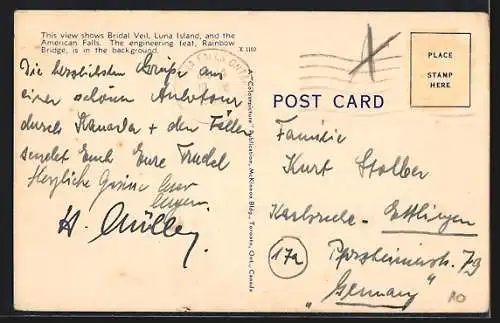 This view shows Bridal Veil, Luna Island, and the
American Falls. The engineering feat, Rainbow
Bridge, is in the background.
K 1102
Die herzlichsten Grüße aus
einer schönen Autotour
durch Kanada + den Fällen
sendet Euch Eure Trudel
Herzliche Grüsse Euer
H. Müller.
A "Colorpicture" Publication, McKinnon Bldg., Toronto, Ont., Canada
POST CARD
PLACE
STAMP
HERE
Familie
Kurt Stolber
Karlsruhe - Ettlingen
17a
Pforzheimerstr. 79
"Germany"